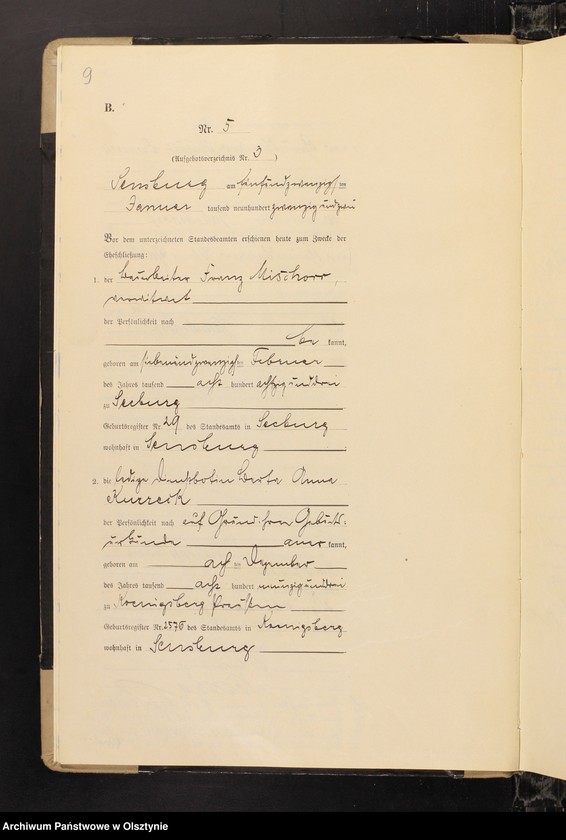 9
B.
Nr. 5
(Aufgebotsverzeichnis Nr. 3 )
Sensburg am fünfundzwanzigsten
Januar tausend neunhundert zwanzig und zwei
Vor dem unterzeichneten Standesbeamten erschienen heute zum Zwecke der
Eheschließung:
1. der Franz
verwitwet
der Persönlichkeit nach
be kannt,
geboren am siebenundzwanzigsten Februar
des Jahres tausend acht hundert achtzig und drei
zu Seeburg
Geburtsregister Nr. 29 des Standesamts in Seeburg
wohnhaft in Sensburg
2. die ledige Dienstbotin Berta Anna
der Persönlichkeit nach auf Grund Geburts-
urkunde aner kannt,
geboren am acht ten Dezember
des Jahres tausend acht hundert neunzig und drei
zu Koenigsberg Preußen
Geburtsregister Nr. 2576 des Standesamts in Koenigsberg
wohnhaft in Sensburg
Archiwum Państwowe w Olsztynie